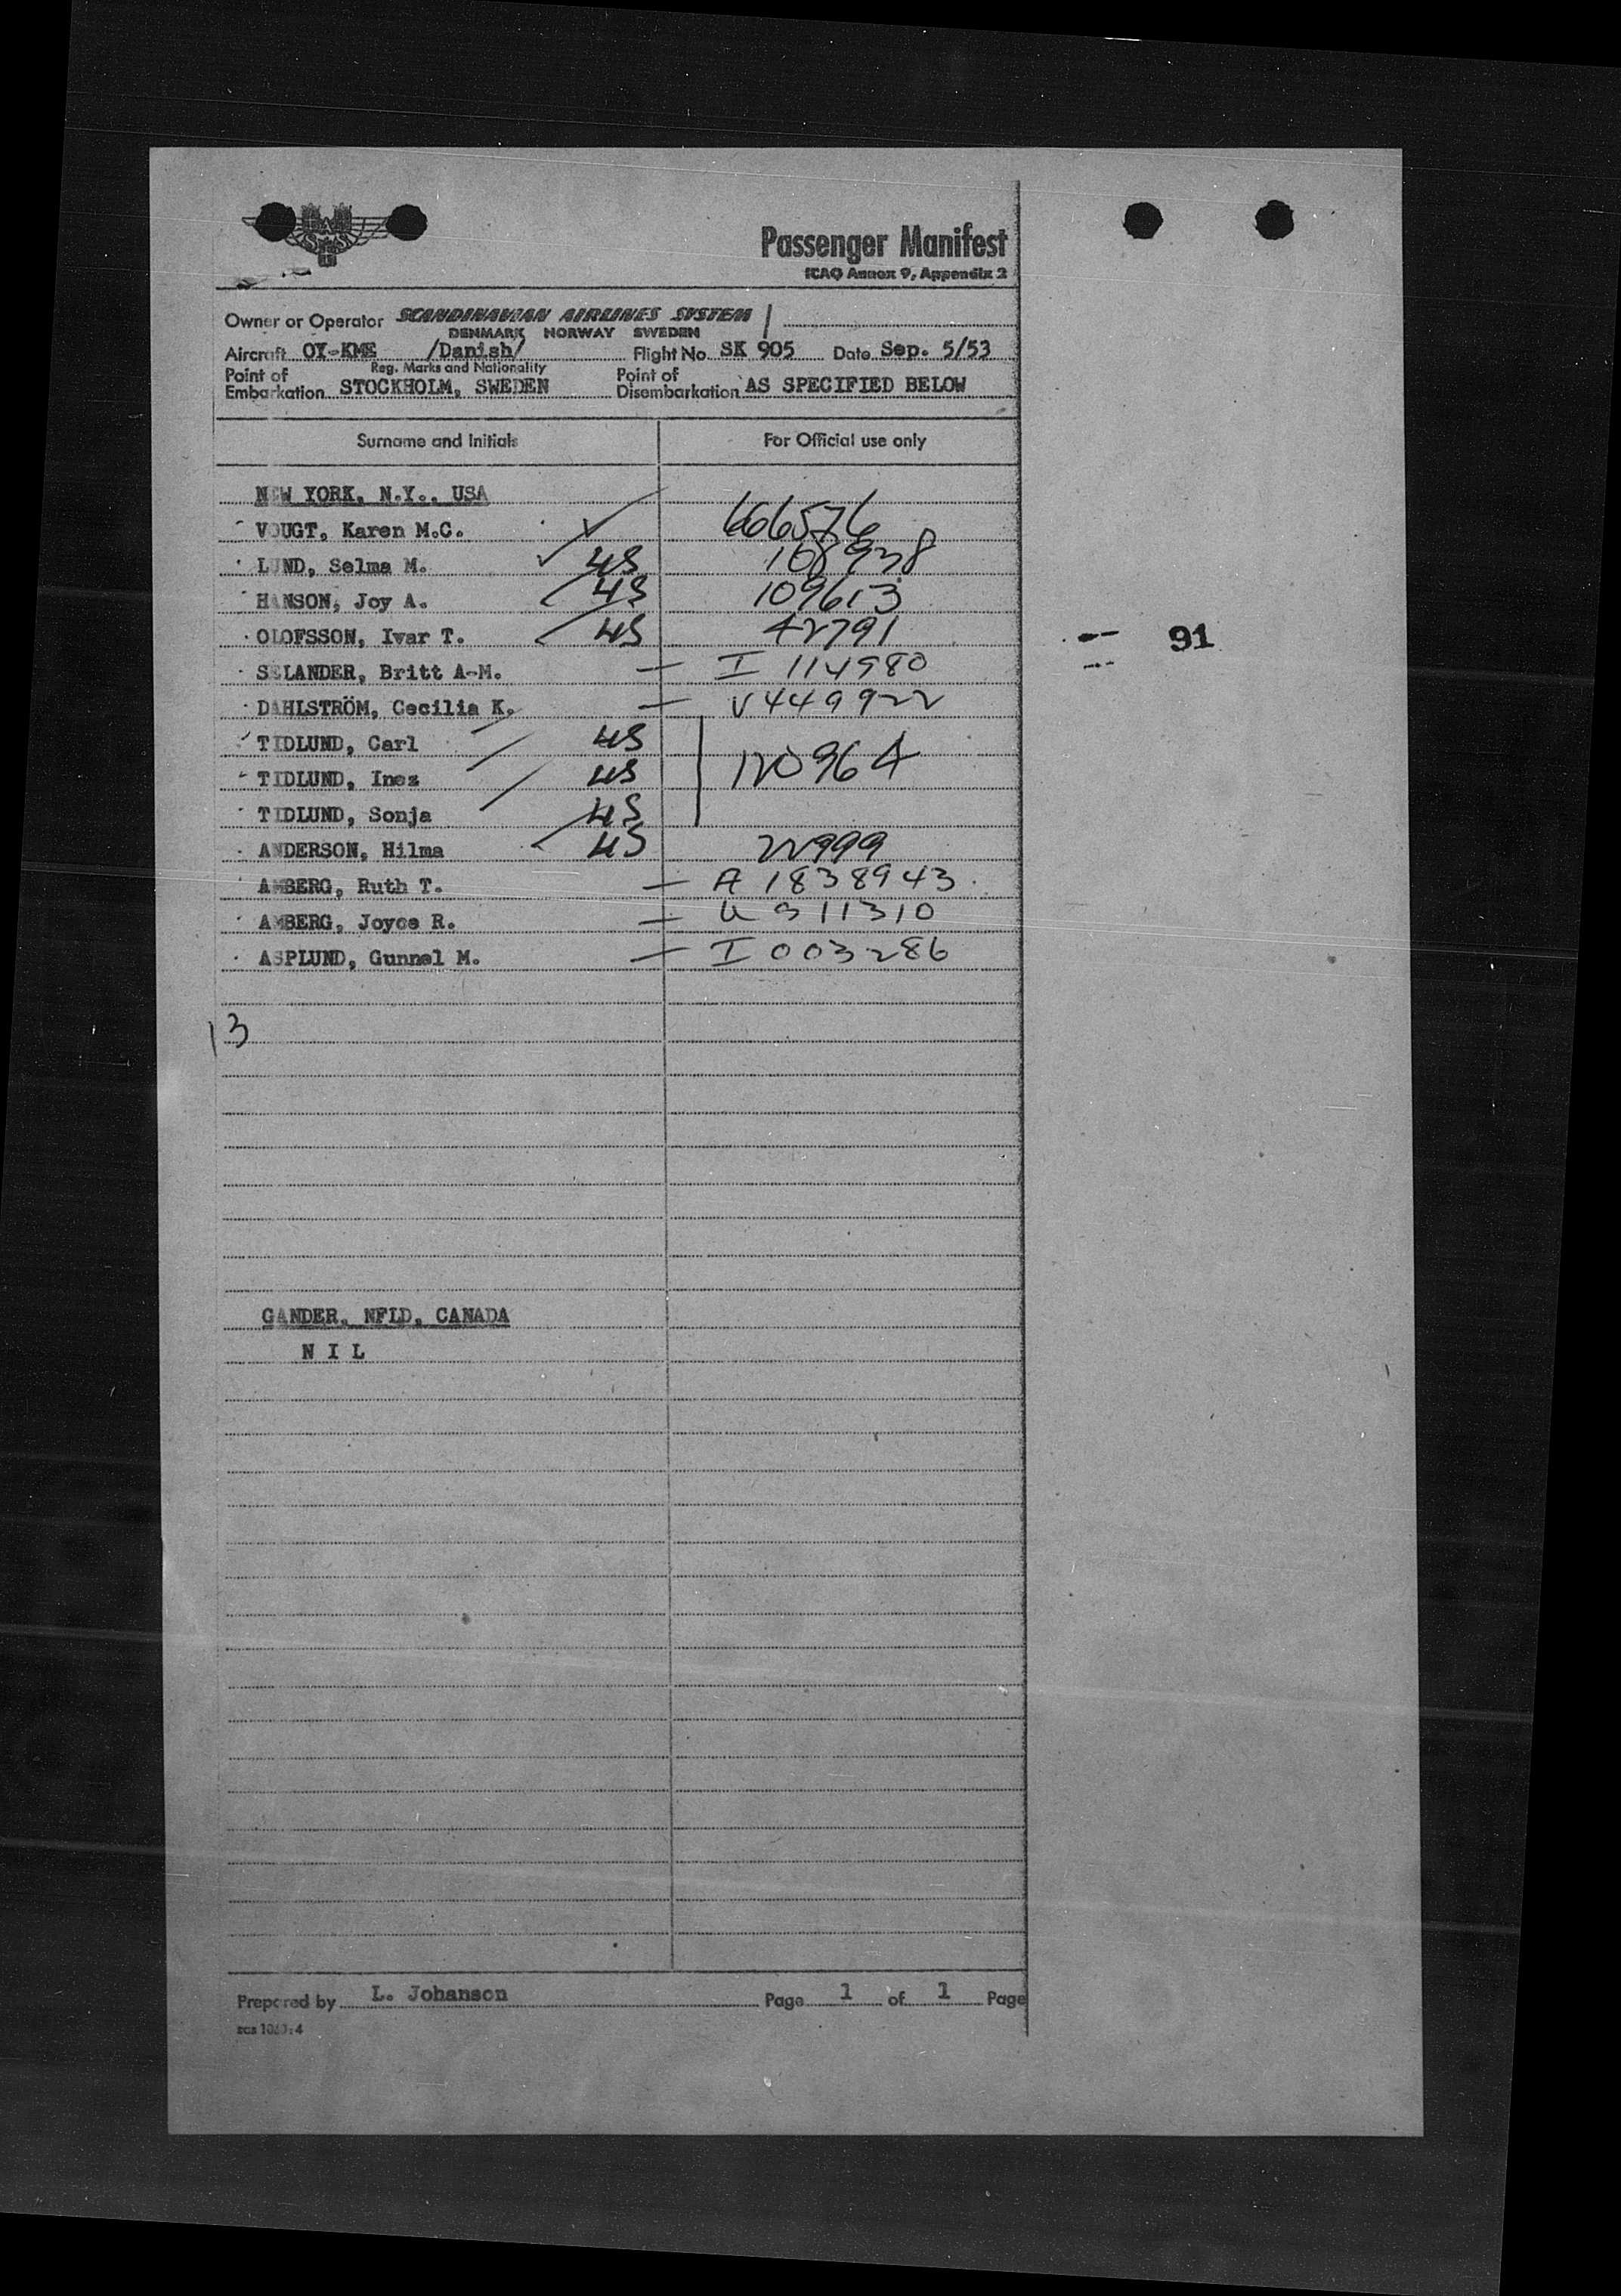 Passenger Manifest
ICAO Annex 9, Appendix 2
Owner or Operator SCANDINAVIAN AIRLINES SYSTEM
DENMARK NORWAY SWEDEN
Aircraft OY-KME /Danish/ Flight No. SK 905 Date Sep. 5/53
Reg. Marks and Nationality
Point of Embarkation STOCKHOLM, SWEDEN Point of Disembarkation AS SPECIFIED BELOW
Surname and Initials For Official use only
NEW YORK, N.Y., USA
VOUGT, Karen M.C. 666576
LUND, Selma M. US 108938
HANSON, Joy A. US 109613
OLOFSSON, Ivar T. US 42791
91
SELANDER, Britt A-M. — I 114980
DAHLSTRÖM, Cecilia K. — V449922
TIDLUND, Carl US
TIDLUND, Inez US 120964
TIDLUND, Sonja US
ANDERSON, Hilma US 22999
AMBERG, Ruth T. — A 1838943
AMBERG, Joyce R. — 311310
ASPLUND, Gunnel M. — I 003286
13
GANDER, NFLD, CANADA
N I L
Prepared by L. Johanson Page 1 of 1 Page